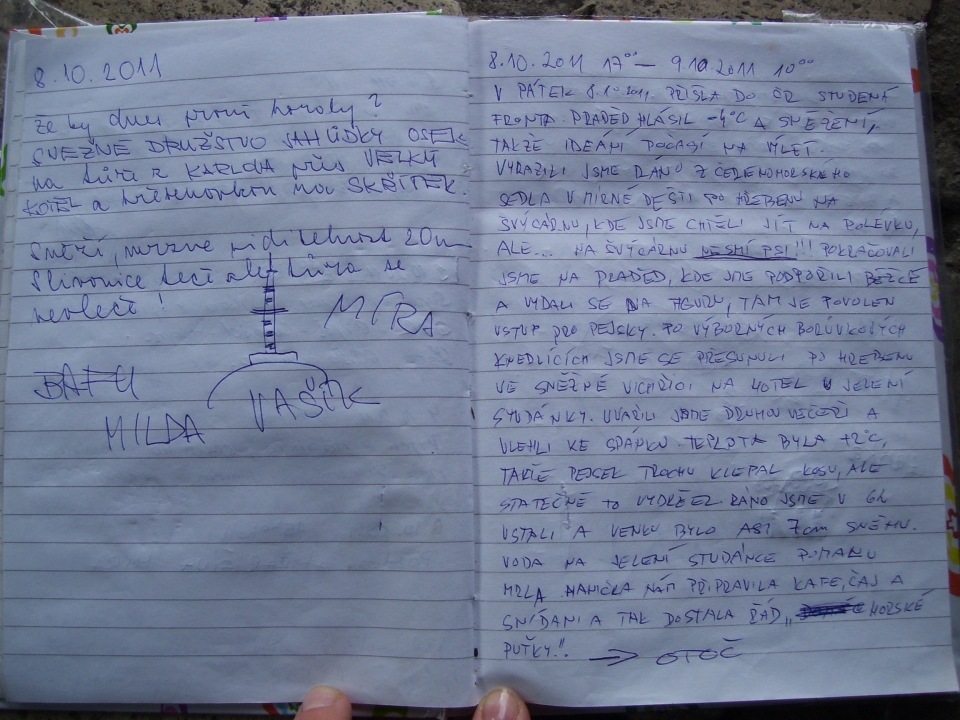 8.10.2011
Že by dnes první horoky?
SNĚŽNÉ DRUŽSTVO JAHŮDKY OSEK
na túře z KARLOA přes VELKÝ
KOTEL a hřebenovkou na SKŘÍTEK.
Sněží, mrzne viditelnost 20m
Slivovice teče ale túra se
nevleče!
MÍRA
BAFU
MILDA
VAŠÍK
8.10.2011 17°° — 9.10.2011 10°°
V PÁTEK 8.10.2011. PŘIŠLA DO ČR STUDENÁ
FRONTA. PRADĚD HLÁSIL -4°C A SNĚŽENÍ,
TAKŽE IDEÁNÍ POČASÍ NA VÝLET.
VYRAZILI JSME RÁNO Z ČERENOHORSKÉHO
SEDLA V MÍRNÉ DEŠTI PO HŘEBENU NA
ŠVÝCÁRNU, KDE JSME CHTĚLI JÍT NA POLÉVKU,
ALE... NA ŠVÝCÁRNU NESMÍ PSI!!! POKRAČOVALI
JSME NA PRADĚD, KDE JSME PODPOŘILI BĚŽCE
A VYDALI SE NA FIGURU, TAM JE POVOLEN
VSTUP PRO PEJSKY. PO VÝBORNÝCH BORŮVKOVÝCH
KNEDLÍCÍCH JSME SE PŘESUNULI PO HŘEBENU
VE SNĚŽNÉ VICHŘICI NA HOTEL U JELENÍ
STUDÁNKY. UVAŘILI JSME DRUHOU VEČEŘI A
ULEHLI KE SPÁNKU. TEPLOTA BYLA +2°C,
TAKŽE PEJSEK TROCHU KLEPAL KOSU, ALE
STATEČNĚ TO VYDRŽEL. RÁNO JSME V 6h
VSTALI A VENKU BYLO ASI 7cm SNĚHU.
VODA NA JELENÍ STUDÁNCE POMALU
MRZLA. MAMIČKA NÁM PŘIPRAVILA KAFE, ČAJ A
SNÍDANI A TAK DOSTALA ŘÁD „HORSKÉ
PUŤKY“. → OTOČ